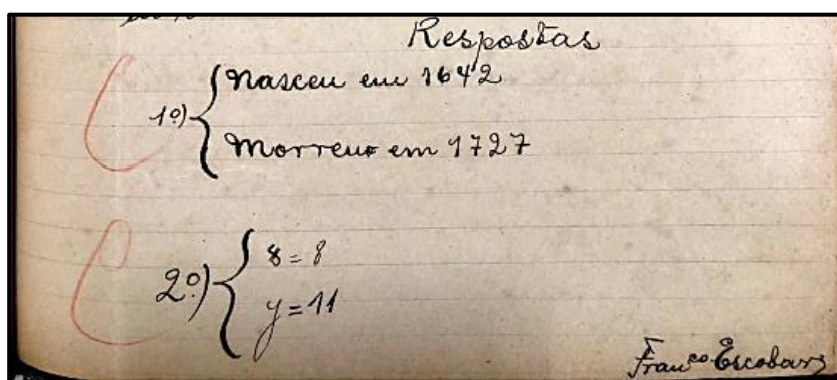 Respostas
1º) Nasceu em 1642
Morreu em 1727
2º) x = 8
y = 11
Franco Escobar